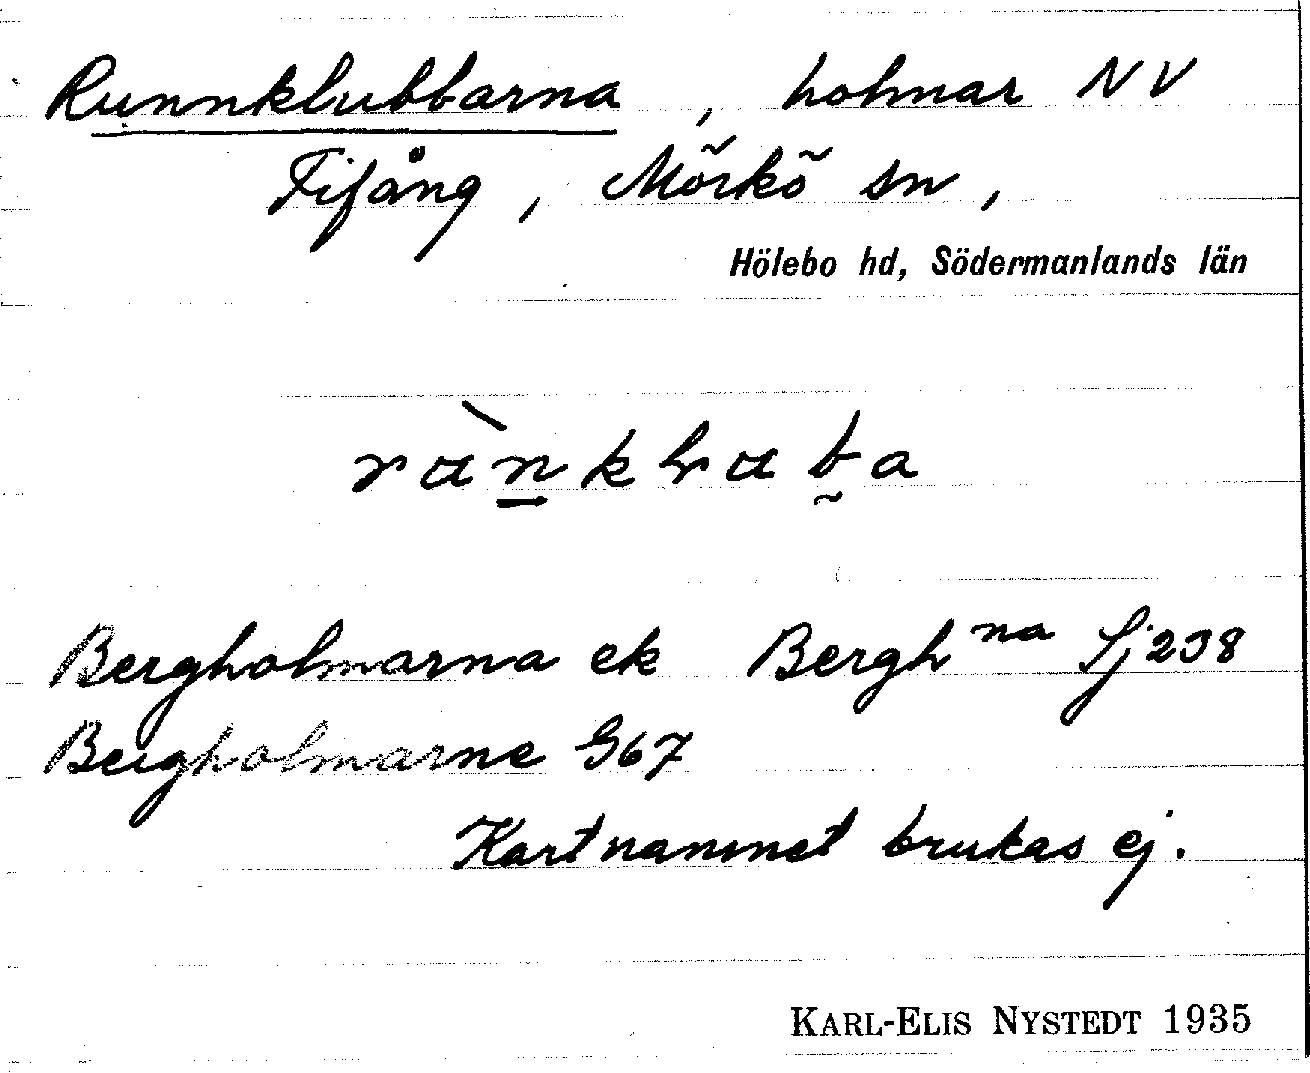 Runnklubbarna, holmar NV
Fifång, Mörkö sn,
Hölebo hd, Södermanlands län
Bergholmarna ek Bergh na Sj 238
Bergholmarne G67
Kartnamnet brukas ej.
KARL-ELIS NYSTEDT 1935